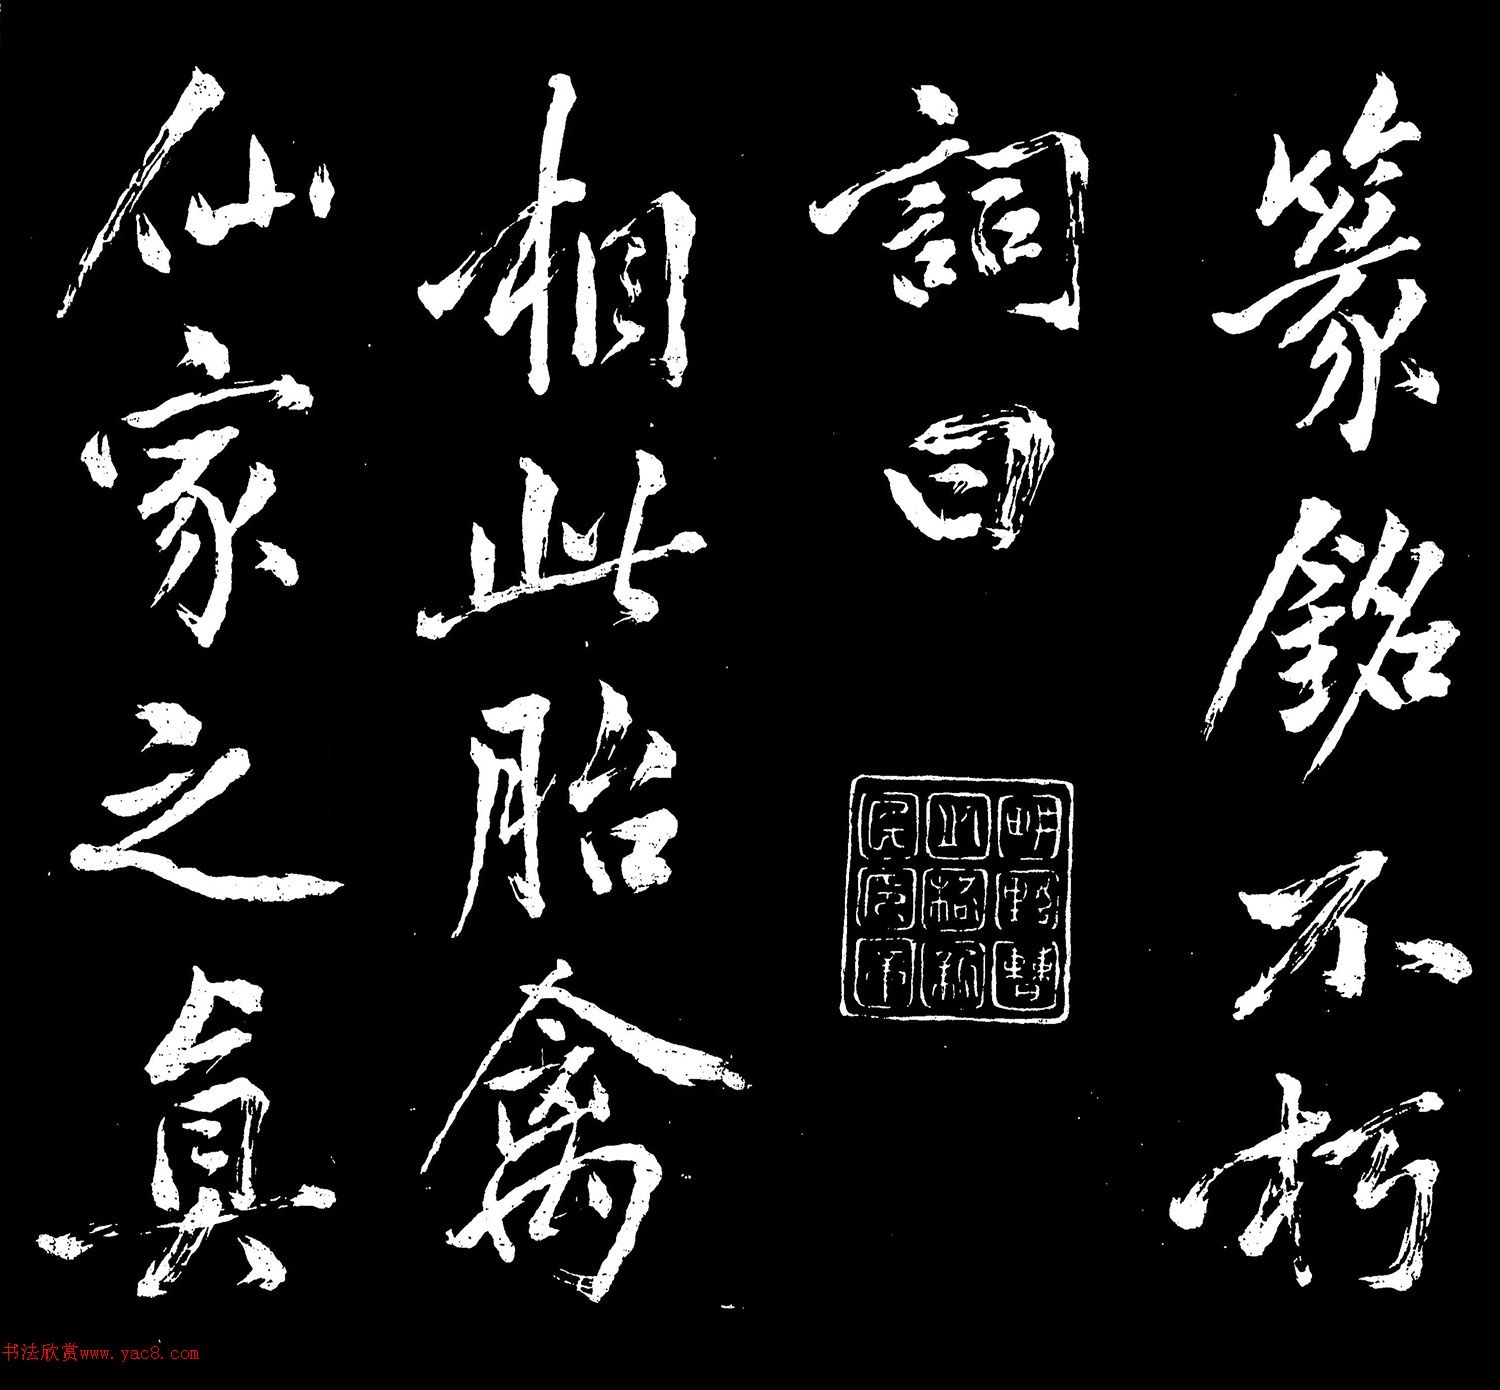 篆銘不朽
詞曰
相此胎禽
仙家之真
书法欣赏www.yac8.com